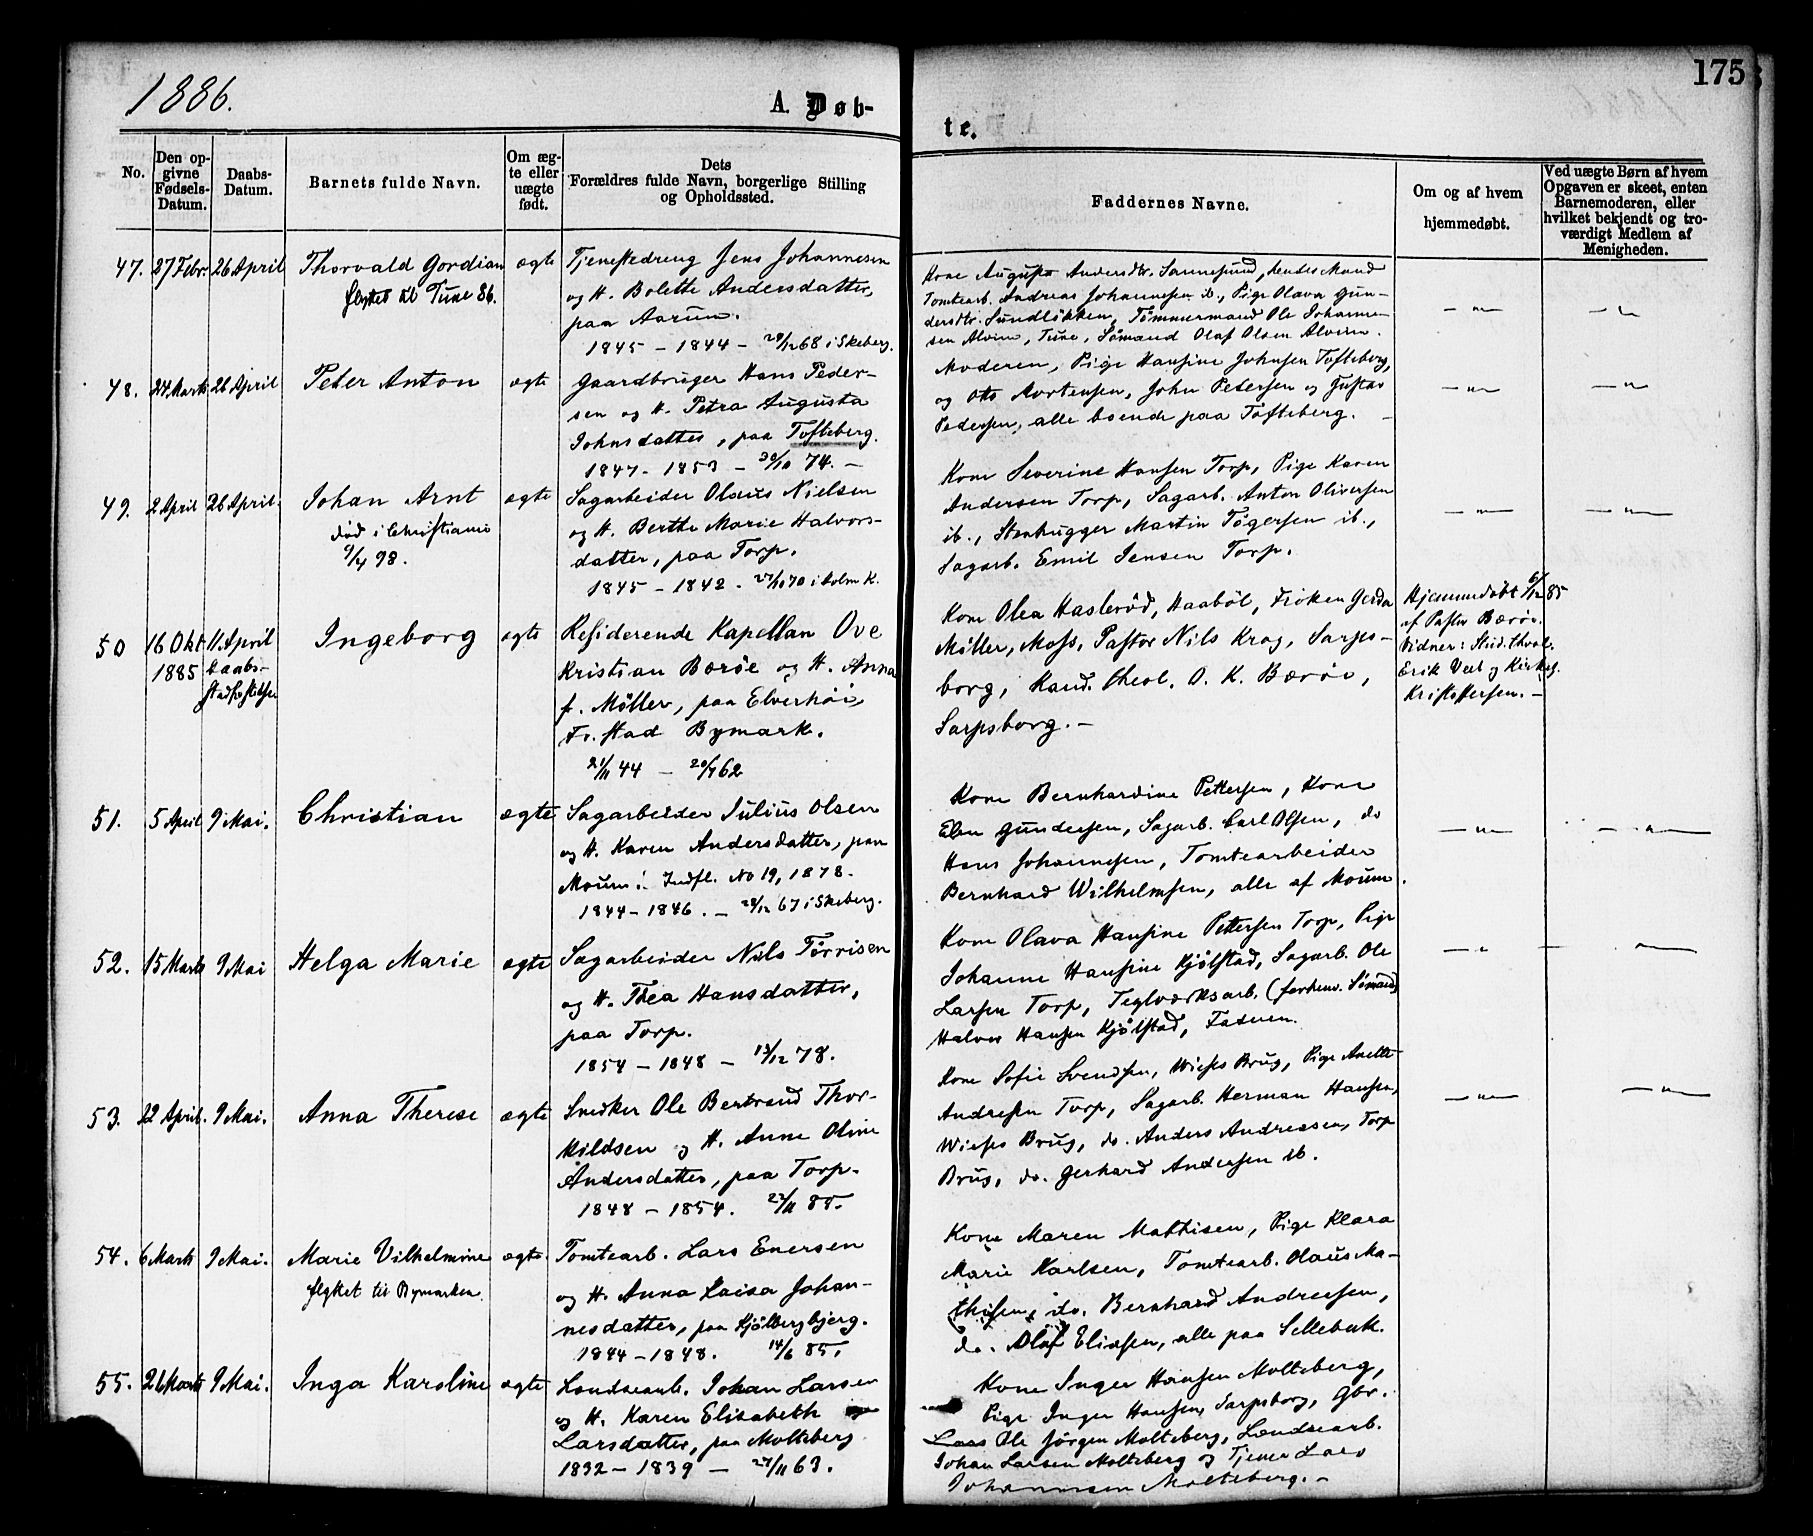 1886.
A. Døb-
te.
175
No.
Den op-
givne
Fødsels-
Datum.
Daabs-
Datum.
Barnets fulde Navn.
Om æg-
te eller
uægte
født.
Dets
Forældres fulde Navn, borgerlige Stilling
og Opholdssted.
Faddernes Navne.
Om og af hvem
hjemmedøbt.
Ved uægte Børn af hvem
Opgaven er skeet, enten
Barnemoderen, eller
hvilket bekjendt og tro-
værdigt Medlem af
Menigheden.
47. 27 Febr. 26 April Thorvald Gordian ægte
flyttet til Tune 86.
Tjenestedreng Jens Johannesen
og H. Bolette Andersdatter,
paa Aarum.
1845 – 1844 – 29/12 68 i Skeberg.
Kone Augusta Andersdtr. Sannesund, hendes Mand
Tomtearb. Andreas Johannesen ib., Pige Olava Gun-
dersdtr. Sundløkken, Tømmermand Ole Johanne-
sen Alvim, Tune, Sømand Olaf Olsen Alvim.
— „ —
— „ —
48. 24 Marts 26 April Peter Anton ægte
Gaardbruger Hans Peder-
sen og H. Petra Augusta
Johnsdatter, paa Tofteberg.
1847 – 1853 – 30/10 74. –
Moderen, Pige Hansine Johnsen Tofteberg,
og Otto Mortensen, John Petersen og Gustav
Pedersen, alle boende paa Tofteberg. –
— „ —
— „ —
49. 2 April 26 April. Johan Arnt ægte
død i Christiania
9/4 98.
Sagarbeider Olaus Nielsen
og H. Berthe Marie Halvors-
datter, paa Torp.
1845 – 1842 – 27/10 70 i Holm K.
Kone Severine Hansen Torp, Pige Karen
Andersen Torp, Sagarb. Anton Oliversen
ib., Stenhugger Martin Tøgersen ib.,
Sagarb. Emil Jensen Torp.
— „ —
— „ —
50 16 Okt. 11 April Ingeborg ægte
1885 Daabs-
stadfæstelse
Residerende Kapellan Ove
Kristian Børøe og H. Anna
f. Møller, paa Elverhøi,
Fr.stad Bymark.
21/11 44 – 20/7 62
Kone Olea Haslerød, Haabøl, Frøken Gerda
Møller, Moss, Pastor Nils Krag, Sarps-
borg, Kand. theol. O. K. Børøe,
Sarpsborg. –
Hjemmedøbt 6/12 85
af Pastor Børøe.
Vidner: Stud. theol.
Erik Vest og Kirkesg.
Kristoffersen. –
51. 5 April 9 Mai. Christian ægte
Sagarbeider Julius Olsen
og H. Karen Andersdatter, paa
Moum. Indfl. No 19, 1878.
1844 – 1846. – 28/12 67 i Skeberg.
Kone Bernhardine Pettersen, Kone
Elen Gundersen, Sagarb. Carl Olsen, do
Hans Johannesen, Tomtearbeider
Bernhard Wilhelmsen, alle af Moum.
— „ —
— „ —
52. 15 Marts 9 Mai Helga Marie ægte
Sagarbeider Nils Tørrisen
og H. Thea Hansdatter,
paa Torp.
1854 – 1848 – 13/12 78.
Kone Olava Hansine Pettersen Torp, Pige
Johanne Hansine Kjølstad, Sagarb. Ole
Larsen Torp, Teglværksarb. (forhenv. Sømand)
Halvor Hansen Kjølstad, Faderen.
— „ —
— „ —
53. 22 April. 9 Mai. Anna Therese ægte
Snedker Ole Bertrand Thor-
kildsen og H. Anne Oline
Andersdatter, paa Torp.
1848 – 1854. 27/11 85.
Kone Sofie Svendsen, Wieses Brug, Pige Anette
Andresen Torp, Sagarb. Herman Hansen,
Wieses Brug, do. Anders Andreasen, Torp
Brug, do. Gerhard Andersen ib.
— „ —
— „ —
54. 6 Marts 9 Mai. Marie Vilhelmine ægte
flyttet til Bymarken.
Tomtearb. Lars Enersen
og H. Anna Laisa Johan-
nesdatter, paa Kjølbergbjerg.
1844 – 1848. 14/6 85.
Kone Maren Mathisen, Pige Klara
Marie Karlsen, Tomtearb. Olaus Ma-
thisen, do. Bernhard Andreesen,
do. Olaf Eliasen, alle paa Sellebak.
55. 26 Marts 9 Mai. Inga Karoline ægte
Landsearb. Johan Larsen
og H. Karen Elisabeth
Larsdatter, paa Molteberg
1832 – 1839 – 27/11 63.
Kone Inger Hansen Molteberg,
Pige Inger Hansen, Sarpsborg, Gbr.
Lars Ole Jørgen Molteberg, Landsearb.
Johan Larsen Molteberg og Tjener Lars
Johannesen Molteberg. –